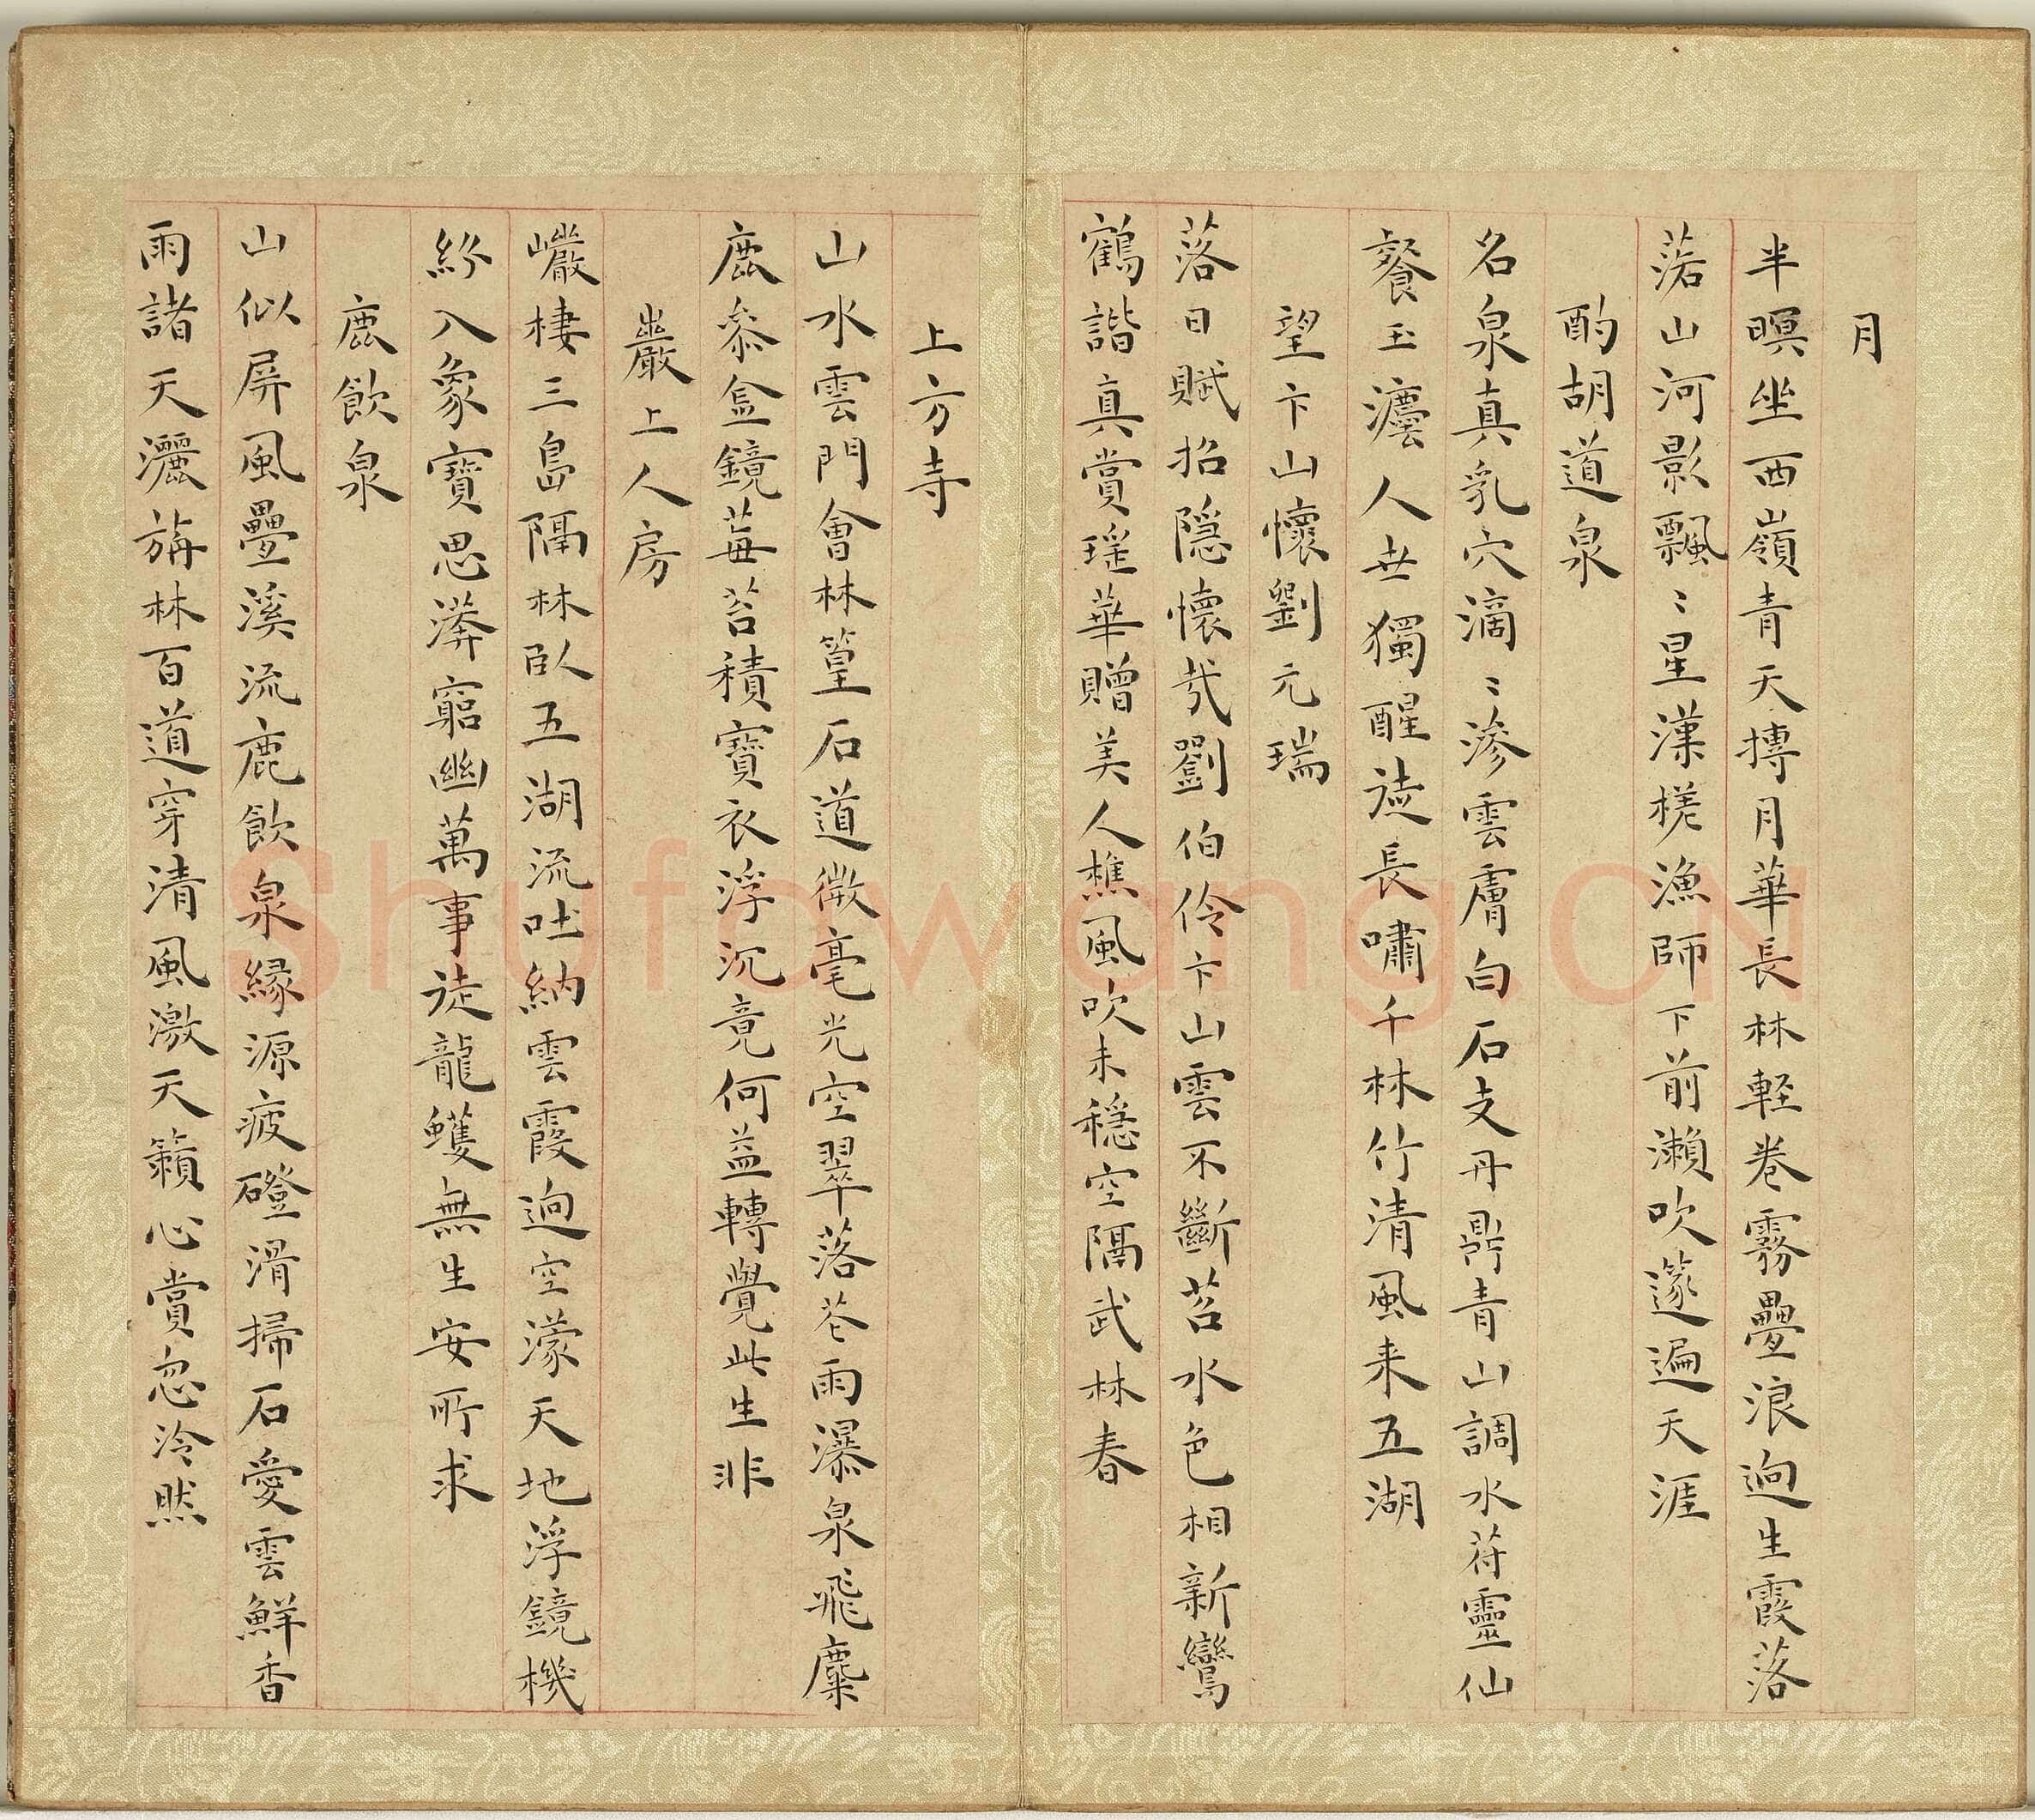 月
半暝坐西嶺青天摶月華長林軽卷霧疊浪逈生霞落
落山河影飄〻星漢槎漁師下前瀨吹篴遍天涯
酌胡道泉
名泉真乳穴滴〻滲雲膚白石支丹鼎青山調水荷靈仙
餐玉瀣人世獨醒徒長嘯千林竹清風来五湖
望卞山懷劉元瑞
落日賦招隱懷哉劉伯伶卞山雲不斷苕水色相新鸞
鶴諧真賞瑶華贈美人樵風吹未穩空隔武林春
上方寺
山水雲門會林篁石道微毫光空翠落花雨瀑泉飛麋
鹿叅盒鏡莓苔積寶衣浮沉竟何益轉覺此生非
巖上人房
巖棲三島隔林臥五湖流吐納雲霞逈空濛天地浮鏡機
紛入象寶思渺窮幽萬事徒龍蠖無生安所求
鹿飲泉
山似屏風疊溪流鹿飲泉緣源疲磴滑掃石愛雲鮮香
雨諸天灑旃林百道穿清風激天籟心賞忽泠然
Shufawang.CN